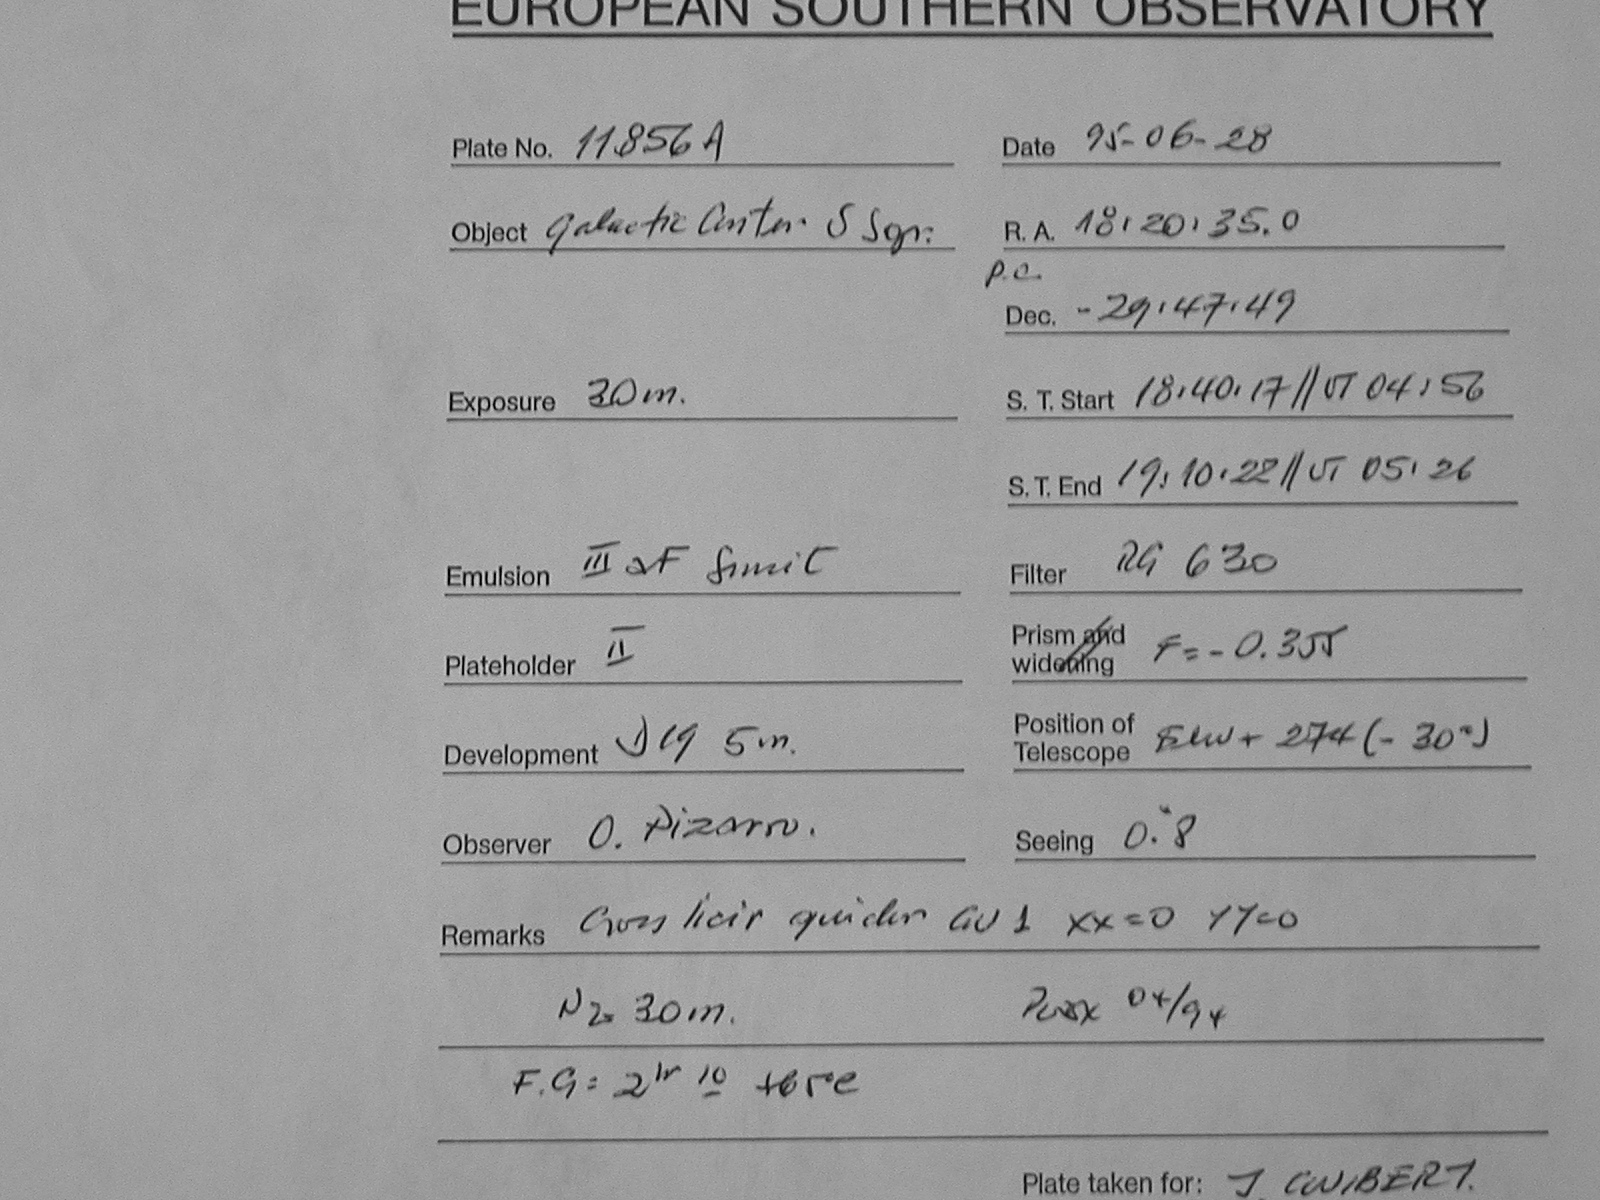 EUROPEAN SOUTHERN OBSERVATORY
Plate No. 11856A Date 95-06-28
Object Galactic Center. S Sgr: R. A. 18:20:35.0
p.c.
Dec. -29:47:49
Exposure 30m. S. T. Start 18:40:17//UT 04:56
S. T. End 19:10:22//UT 05:26
Emulsion III aF Filter RG 630
Plateholder II Prism and widening F=-0.355
Development D19 5m. Position of Telescope + 274(-30°)
Observer O. Pizarro. Seeing 0."8
Remarks Cross hair guider GU 1 XX=0 YY=0
N2= 30m. 04/94
F.G= 2hr 10
Plate taken for: J. GUIBERT.